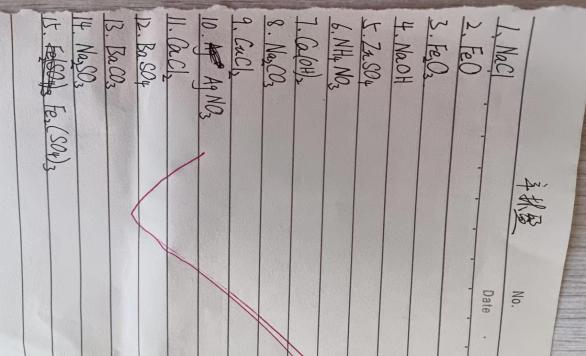 No.
Date
1. NaCl
2. FeO
3. Fe₂O₃
4. NaOH
5. ZnSO₄
6. NH₄NO₃
7. Ca(OH)₂
8. Na₂CO₃
9. CuCl₂
10. AgNO₃
11. CaCl₂
12. BaSO₄
13. BaCO₃
14. Na₂SO₃
15. Fe₂(SO₄)₃